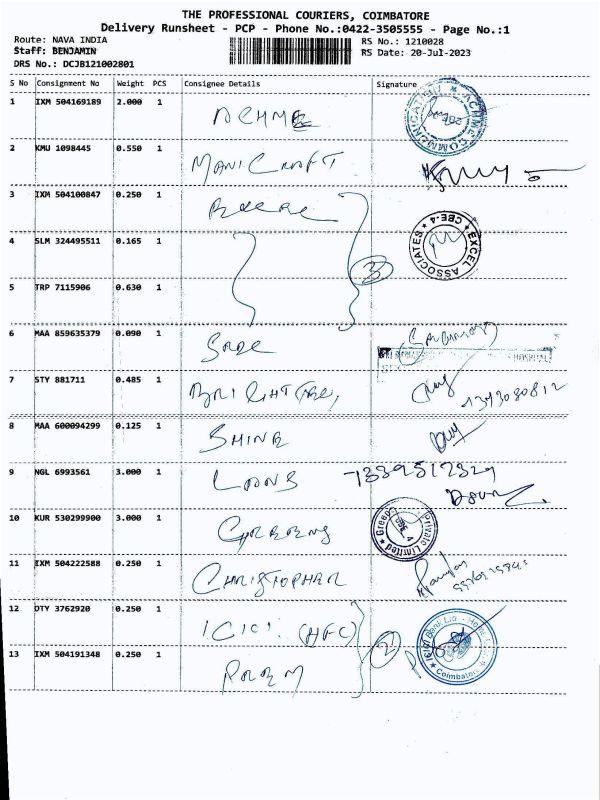 THE PROFESSIONAL COURIERS, COIMBATORE
Delivery Runsheet - PCP - Phone No.:0422-3505555 - Page No.:1
Route: NAVA INDIA RS No.: 1210028
Staff: BENJAMIN RS Date: 20-Jul-2023
DRS No.: DCJB121002801
S No Consignment No Weight PCS Consignee Details Signature
1 IXM 504169189 2.000 1 ACHME
2 KMU 1098445 0.550 1 MANI CRAFT
3 IXM 504100847 0.250 1
4 SLM 324495511 0.165 1 3
EXCEL ASSOCIATES CBE-4
5 TRP 7115906 0.630 1
6 MAA 859635379 0.090 1
HOSPITAL
7 STY 881711 0.485 1
8 MAA 600094299 0.125 1 SHINE
9 NGL 6993561 3.000 1 LOONS
10 KUR 530299900 3.000 1
Private Limited
11 IXM 504222588 0.250 1 CHRISTOPHER
12 OTY 3762920 0.250 1 ICICI (HFC)
2
ICICI Bank Ltd. Coimbatore
13 IXM 504191348 0.250 1 PREM